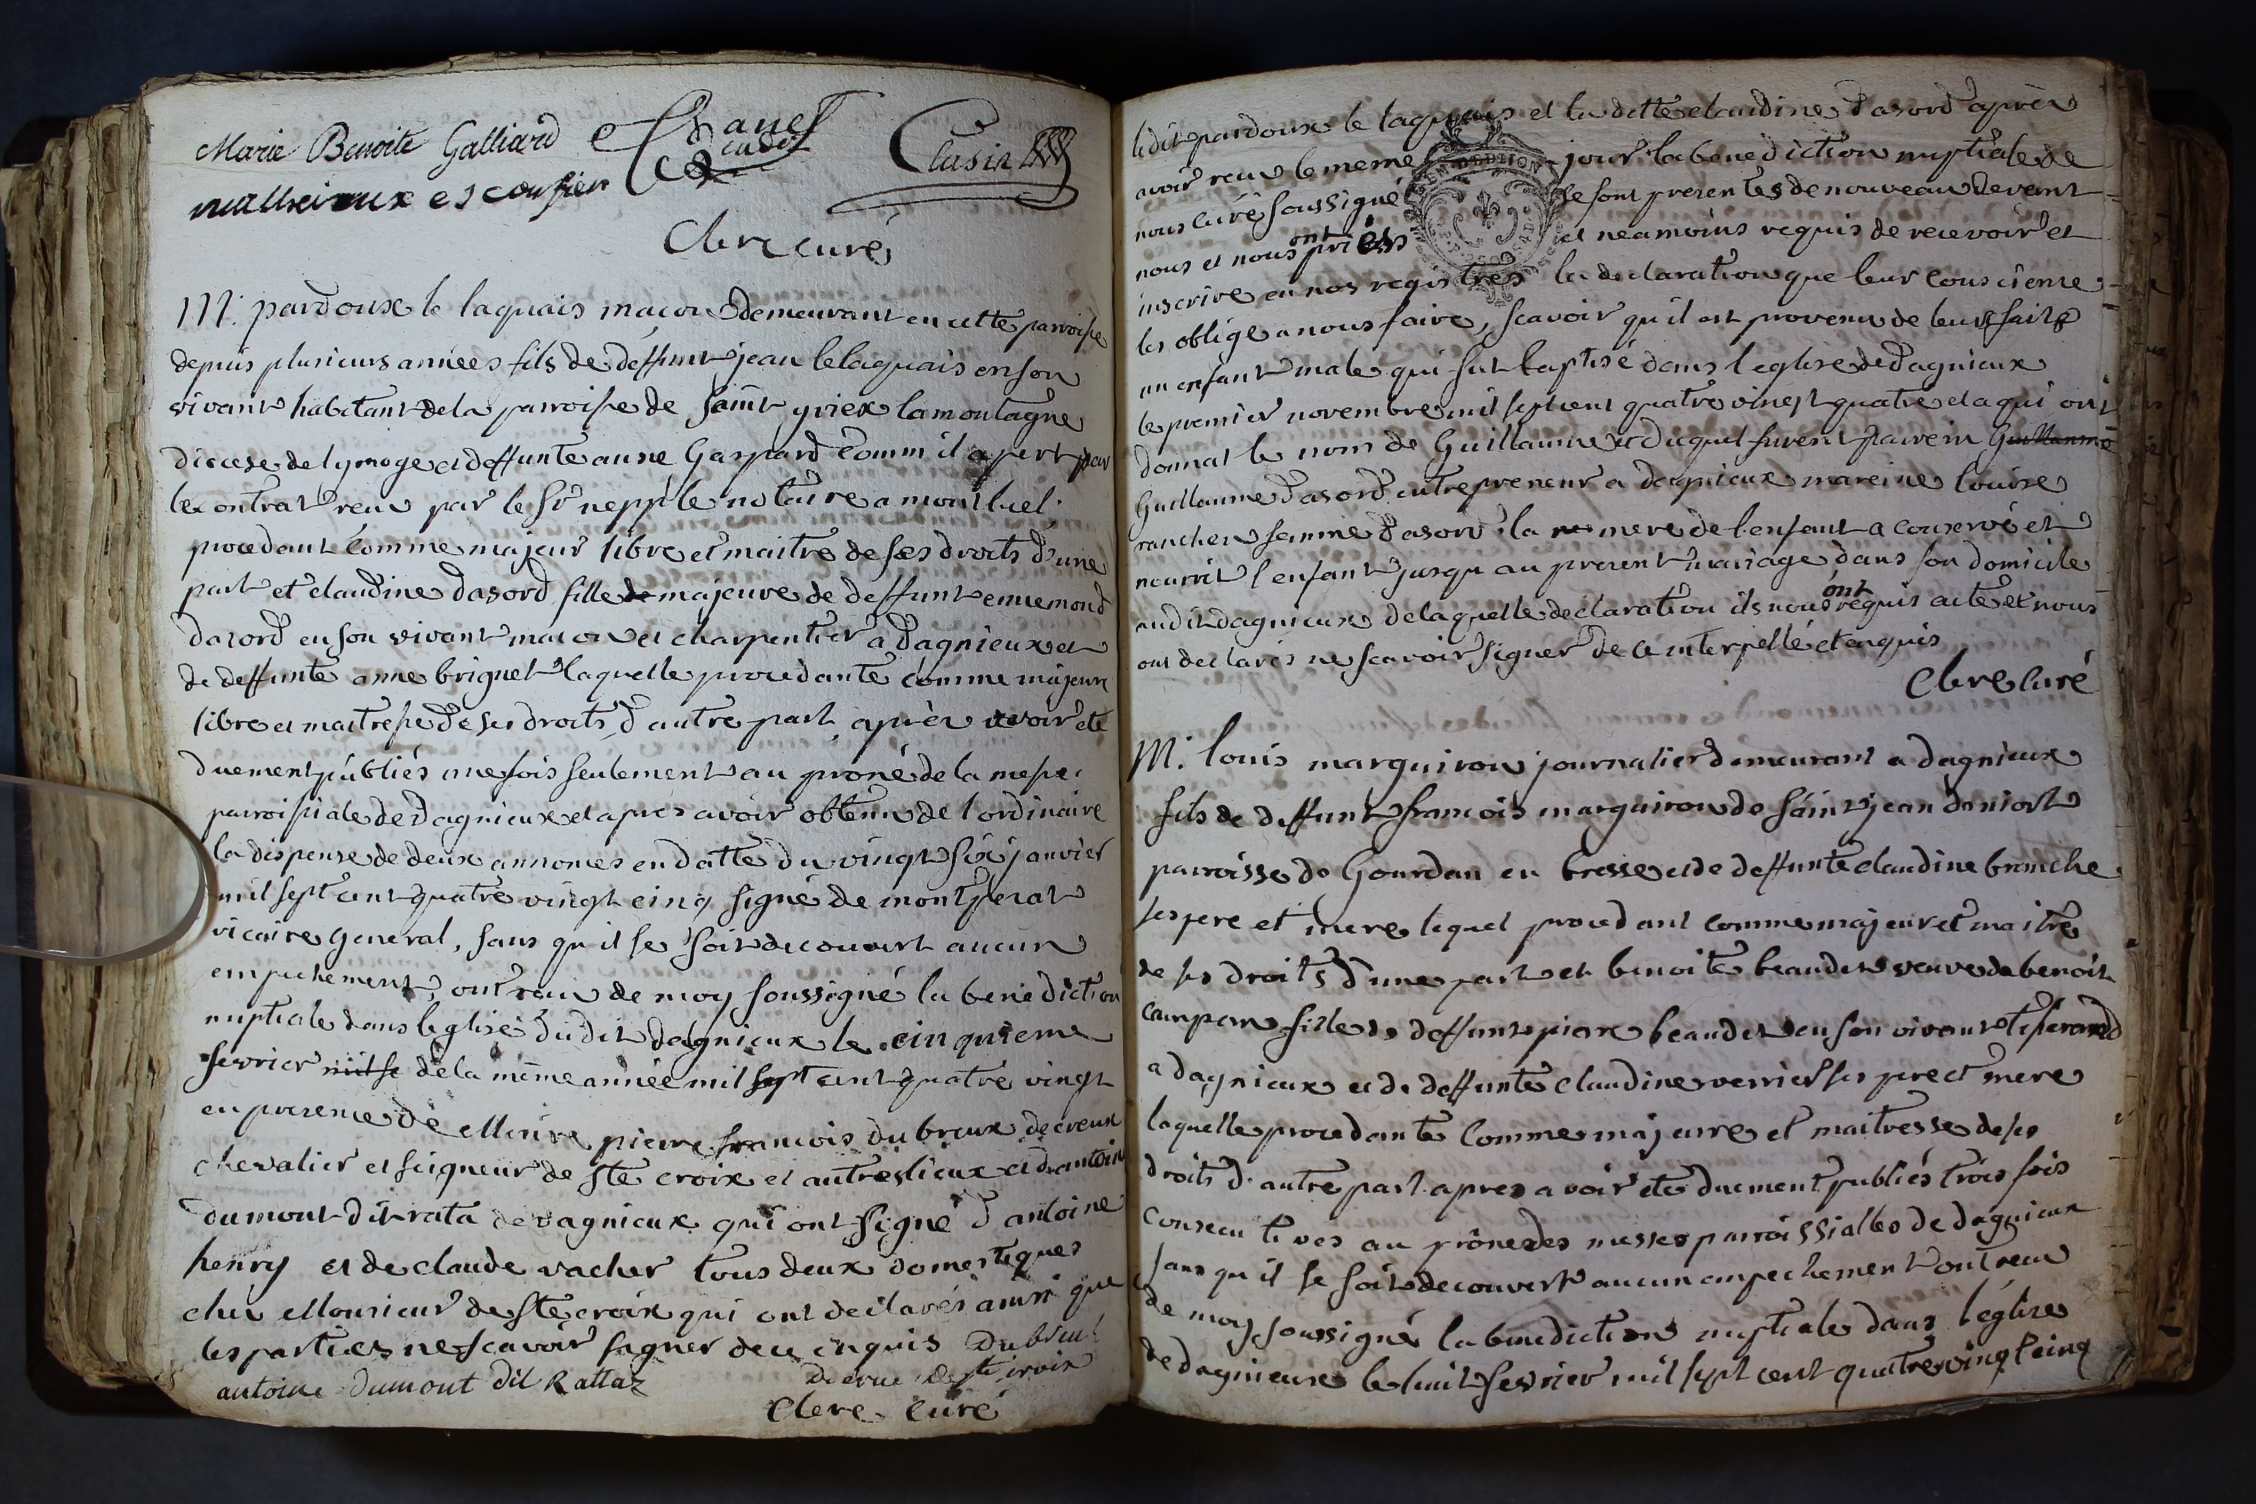 Marie Benoite Galliard Chanel cadet Clusin
matherieux e s coussien
Clere curé
M. pardoux le laquais macon demeurant en cette parroisse
depuis plusieurs années fils de deffunt jean le laquais en son
vivant habitant de la parroisse de saint yriex la montagne
diocese de lymoge et deffunte anne Gaspard comm il apert par
le contrat receu par le Sr nepple notaire a montluel
procedant comme majeur libre et maitre de ses droits d'une
part et claudine dasord fille de majeure de deffunt ennemond
dasord en son vivant macon et charpentier a dagnieux et
de deffunte anne brignet laquelle procedante comme majeure
libre et maitresse de ses droits d'autre part, après avoir eté
duement publiés une fois seulement au prone de la messe
parroissiale de dagnieux et apres avoir obtenu de l'ordinaire
la dispense de deux annonces en datte du vingt six janvier
mil sept cent quatre vingt cinq signé de montperat
vicaire general, sans qu il se soit decouvert aucun
empechement, ont receu de moy soussigné la benediction
nuptiale dans l'eglise dudit dagnieux le cinquieme
fevrier mil se de la même année mil sept cent quatre vingt
en presence de Messire pierre francois du breux decreux
chevalier et seigneur de Ste croix et autres lieux et dantoine
dumont dit rata de dagnieux qui ont signé d'antoine
henry et de claude vacher tous deux domestiques
chez Monsieur de Ste croix qui ont declarés ainsi que
les parties ne scavoir signer de ce enquis Dubreul
antoine dumont dit Rattaz Decrue de Ste croix
Clere curé
ledit pardoux le laquais et la ditte claudine dasord après
avoir receu le meme jour la benediction nuptiale de
nous curé soussigné se sont presentés de nouveau devant
nous et nous ont priés et neamoins requis de recevoir et
inscrire en nos registres la declaration que leur conscience
les oblige a nous faire, scavoir qu il est provenu de leurs faits
un enfant male qui fut baptisé dans l'eglise de dagnieux
le premier novembre mil sept cent quatre vingt quatre et a qui ont
donnat le nom de Guillaume et duquel furent parrein Guillaume
Guillaume dasord entrepreneur a dagnieux mareine louise
rancher femme dasord la me mere de l'enfant a conservé et
nourrit l'enfant jusqu au present mariage dans son domicile
audit dagnieux de laquelle declaration ils nous ont requis acte et nous
ont declarés ne scavoir signer de ce interpellé et enquis
Clere curé
M. louis marquirou journalier demeurant a dagnieux
fils de deffunt francois marquirou de saint jean daniost
parroisse de Gourdan en bresse et de deffunte claudine branche
ses pere et mere lequel procedant comme majeur et maitre
de ses droits d'une part et benoite beaudet veuve de benoit
campan fille de deffunt piere beaudet en son vivant tisserand
a dagnieux et de deffunte claudine verrier ses pere et mere
laquelle procedante comme majeure et maitresse de ses
droits d'autre part apres avoir eté duement publiés trois fois
consecutives au prônes des messes parroissialles de dagnieux
sans qu il se soit decouvert aucun empechement ont receu
de moy soussigné la benediction nuptiale dans l'église
de dagnieux le huit fevrier mil sept cent quatre vingt cinq